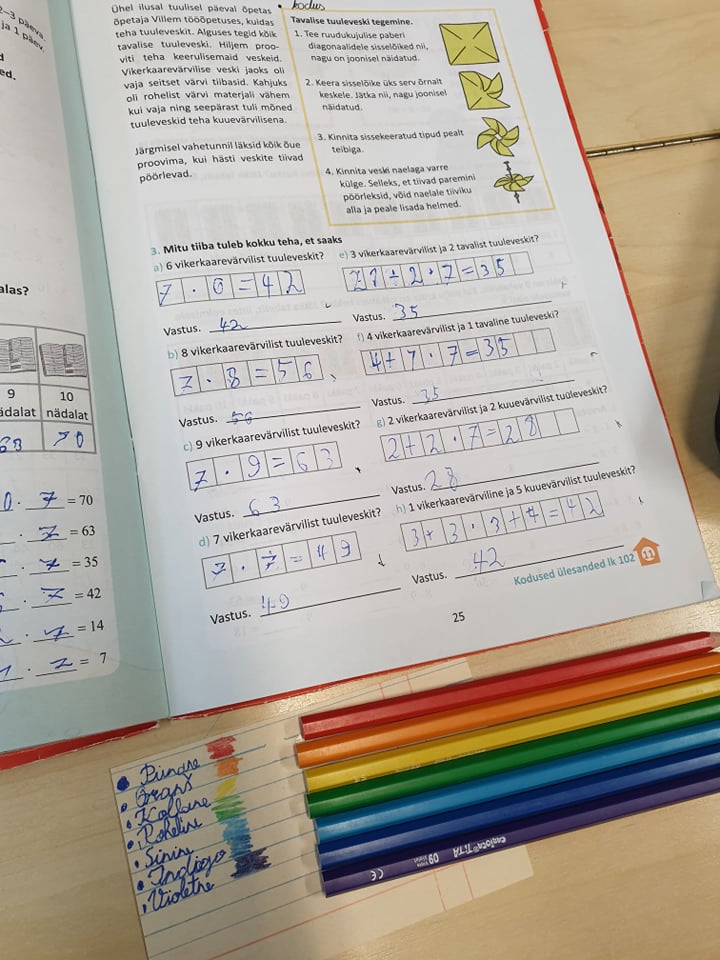 2–3 päeva
ja 1 päev.
Ühel ilusal tuulisel päeval õpetas
õpetaja Villem tööõpetuses, kuidas
teha tuuleveskit. Alguses tegid kõik
tavalise tuuleveski. Hiljem proo-
viti teha keerulisemaid veskeid.
Vikerkaarevärvilise veski jaoks oli
vaja seitset värvi tiibasid. Kahjuks
oli rohelist värvi materjali vähem
kui vaja ning seepärast tuli mõned
tuuleveskid teha kuuevärvilisena.
Järgmisel vahetunnil läksid kõik õue
proovima, kui hästi veskite tiivad
pöörlevad.
kodus
Tavalise tuuleveski tegemine.
1. Tee ruudukujulise paberi
diagonaalidele sisselõiked nii,
nagu on joonisel näidatud.
2. Keera sisselõike üks serv õrnalt
keskele. Jätka nii, nagu joonisel
näidatud.
3. Kinnita sissekeeratud tipud pealt
teibiga.
4. Kinnita veski naelaga varre
külge. Selleks, et tiivad paremini
pöörleksid, võid naelale tiiviku
alla ja peale lisada helmed.
3. Mitu tiiba tuleb kokku teha, et saaks
a) 6 vikerkaarevärvilist tuuleveskit?
7 · 6 = 42
Vastus. 42
b) 8 vikerkaarevärvilist tuuleveskit?
7 · 8 = 56
Vastus. 56
c) 9 vikerkaarevärvilist tuuleveskit?
7 · 9 = 63
Vastus. 63
d) 7 vikerkaarevärvilist tuuleveskit?
7 · 7 = 49
Vastus. 49
e) 3 vikerkaarevärvilist ja 2 tavalist tuuleveskit?
+ 2 · 7 = 35
Vastus. 35
f) 4 vikerkaarevärvilist ja 1 tavaline tuuleveski?
4 + 1 · 7 = 35
Vastus. 35
g) 2 vikerkaarevärvilist ja 2 kuuevärvilist tuuleveskit?
2 + 2 · 7 = 28
Vastus. 28
h) 1 vikerkaarevärviline ja 5 kuuevärvilist tuuleveskit?
3 + 3 · 3 + 4 = 42
Vastus. 42
Kodused ülesanded lk 102
11
25
alas?
9
nädalat
63
10
nädalat
70
· 7 = 70
· 7 = 63
· 7 = 35
· 7 = 42
· 7 = 14
· 7 = 7
Punane
Oranž
Kollane
Roheline
Sinine
Indigo
Violetne
carioca TITA 09
CE